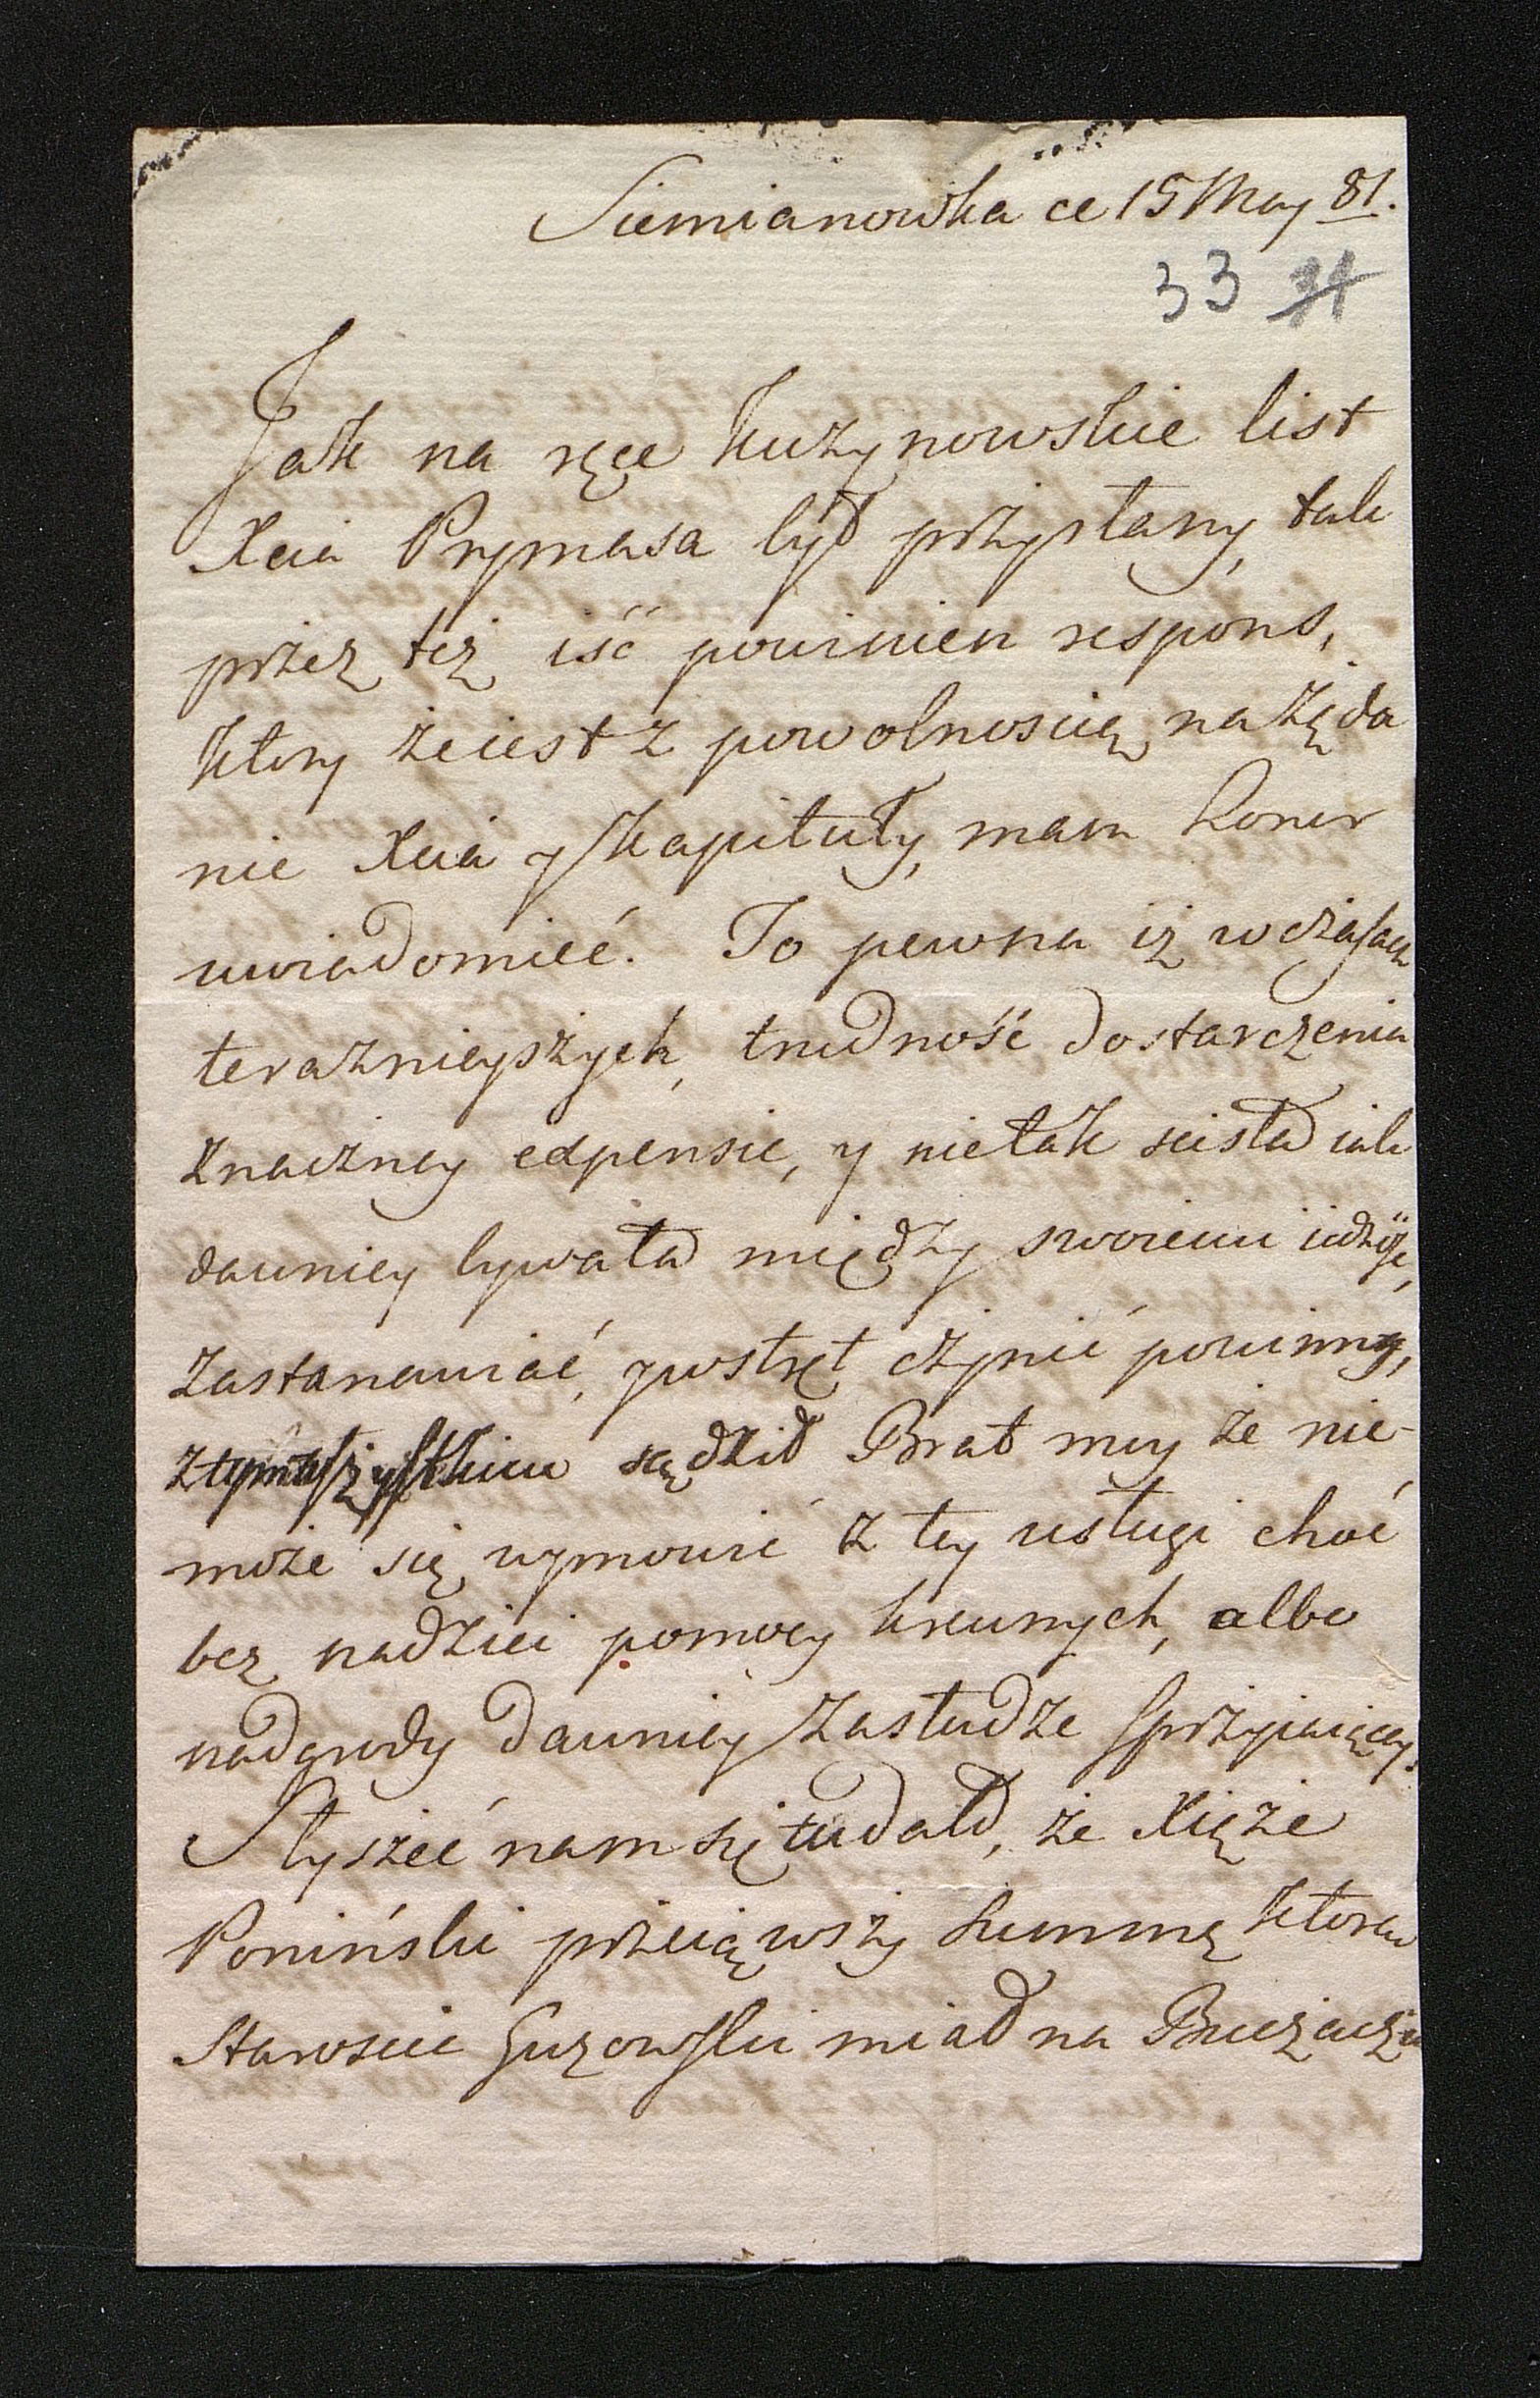 Siemianowka ce 15 May 81.
33 34
Jak na ręce Kuzynowskie list
Xcia Prymasa był przysłany, tak
przez też iść powinien respons,
ktory że iest z powolnoscią na żąda
nie Xcia y Kapituły, mam honor
uwiadomić. To pewna iż w czasach
teraznieyszych, trudność dostarczenia
znaczney expensie, y nie tak scisła iak
dawniey bywała między swoiemi
zastanawiać, y wstręt czynić powinny,
z tym wszystkim sądził Brat moy że nie-
może się wymowić z tey usługi choć
bez nadziei pomocy krewnych, albo
nadgrody dawniey zasłudze sprzyiaiącey.
Słyszeć nam się tu dało, że Xiąże
Poniński przeiąwszy summę ktora
Staroscic Guzowski miał na